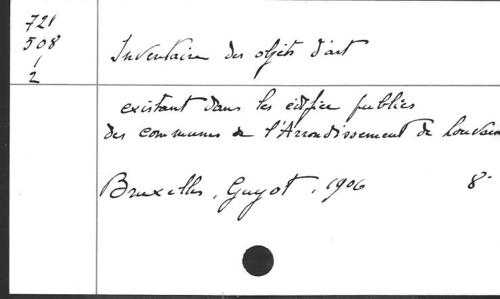 721
508
1
2
Inventaire des objets d'art
existant dans les édifice publics
des communes de l'Arrondissement de Louvain
Bruxelles, Guyot, 1906 8°